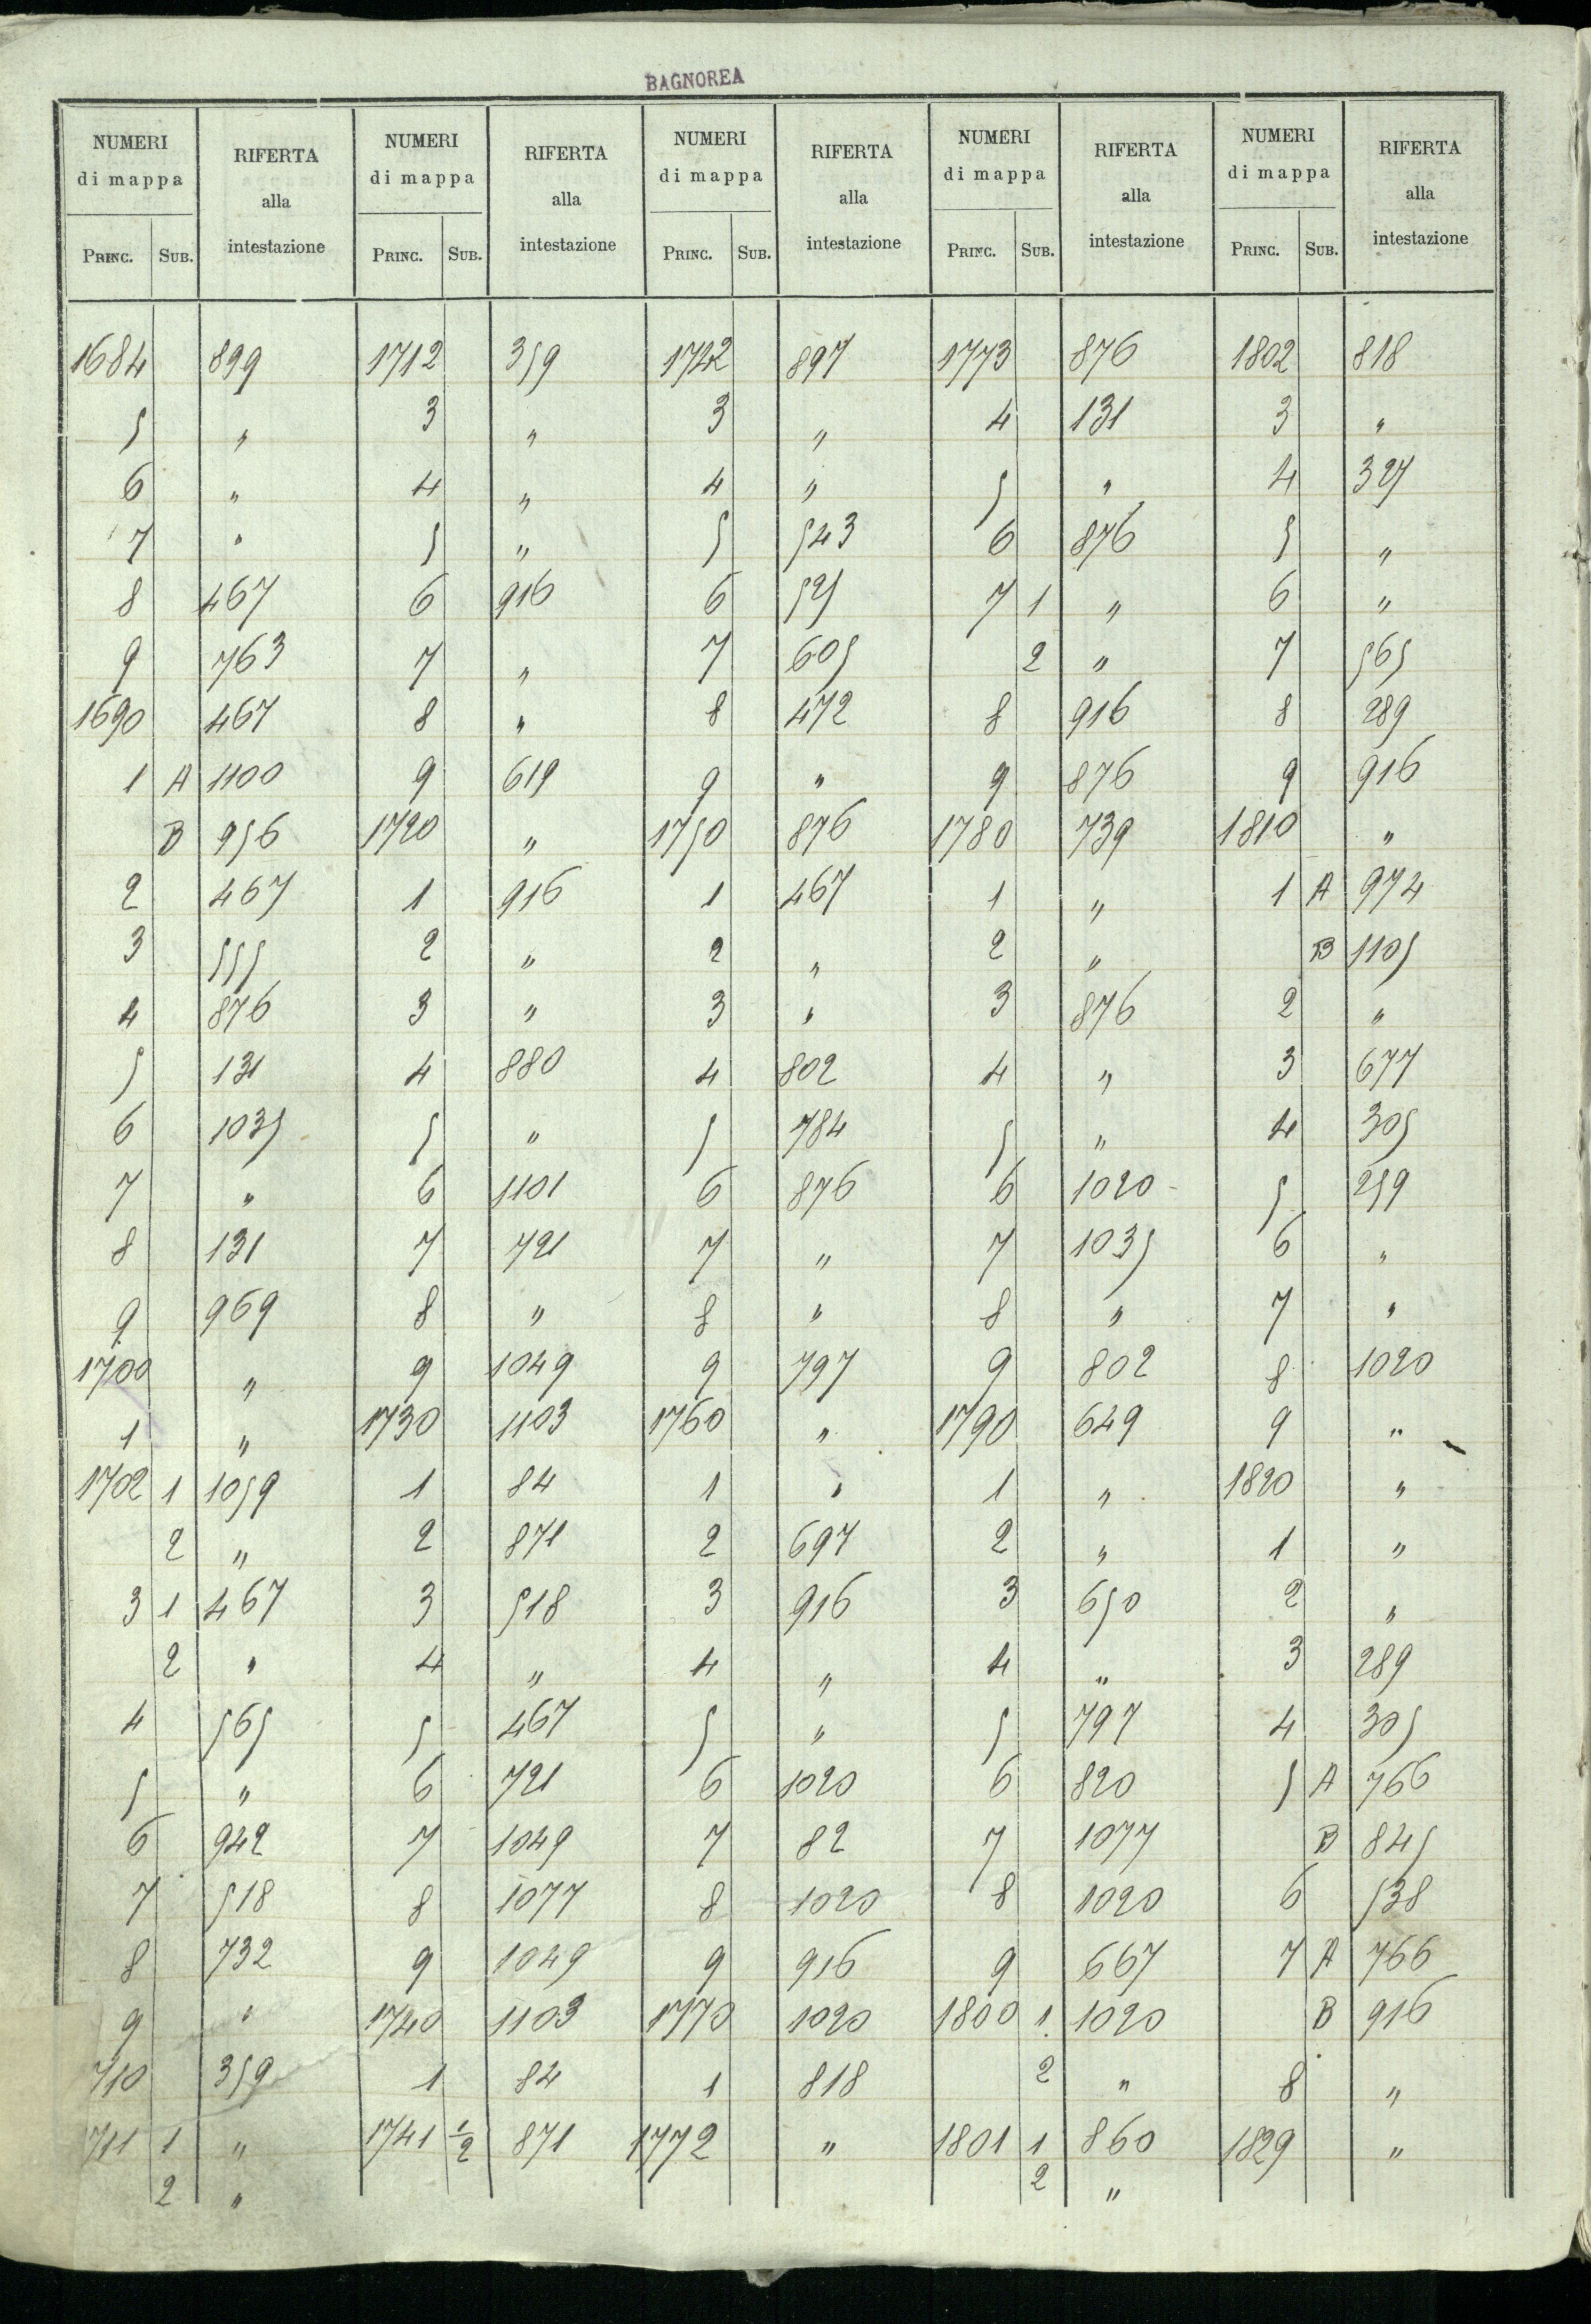 BAGNOREA
NUMERI di mappa RIFERTA alla intestazione NUMERI di mappa RIFERTA alla intestazione NUMERI di mappa RIFERTA alla intestazione NUMERI di mappa RIFERTA alla intestazione NUMERI di mappa RIFERTA alla intestazione
PRINC. SUB. PRINC. SUB. PRINC. SUB. PRINC. SUB. PRINC. SUB.
1684 899 1712 359 1742 897 1773 876 1802 818
5 " 3 " 3 " 4 131 3 "
6 " 4 " 4 " 5 " 4 327
7 " 5 " 5 543 6 876 5 "
8 467 6 916 6 525 7 1 " 6 "
9 763 7 " 7 605 2 " 7 565
1690 467 8 " 8 472 8 916 8 289
1 A 1100 9 619 9 " 9 876 9 916
B 956 1720 " 1750 876 1780 739 1810 "
2 467 1 916 1 467 1 " 1 A 974
3 555 2 " 2 " 2 " B 1105
4 876 3 " 3 " 3 876 2 "
5 131 4 880 4 802 4 " 3 677
6 1035 5 " 5 784 5 " 4 305
7 " 6 1101 6 876 6 1020 5 259
8 131 7 721 7 " 7 1035 6 "
9 969 8 " 8 " 8 " 7 "
1700 " 9 1049 9 797 9 802 8 1020
1 " 1730 1103 1760 " 1790 649 9 "
1702 1 1059 1 84 1 " 1 " 1820 "
2 " 2 871 2 697 2 " 1 "
3 1 467 3 518 3 916 3 650 2 "
2 " 4 " 4 " 4 " 3 289
4 565 5 467 5 " 5 797 4 305
5 " 6 721 6 1020 6 820 5 A 766
6 942 7 1049 7 82 7 1077 B 845
7 518 8 1077 8 1020 8 1020 6 538
8 732 9 1049 9 916 9 667 7 A 766
9 " 1740 1103 1770 1020 1800 1 1020 B 916
710 359 1 84 1 818 2 " 8 "
711 1 " 1741 1/2 871 1772 " 1801 1 860 1829 "
2 " 2 "